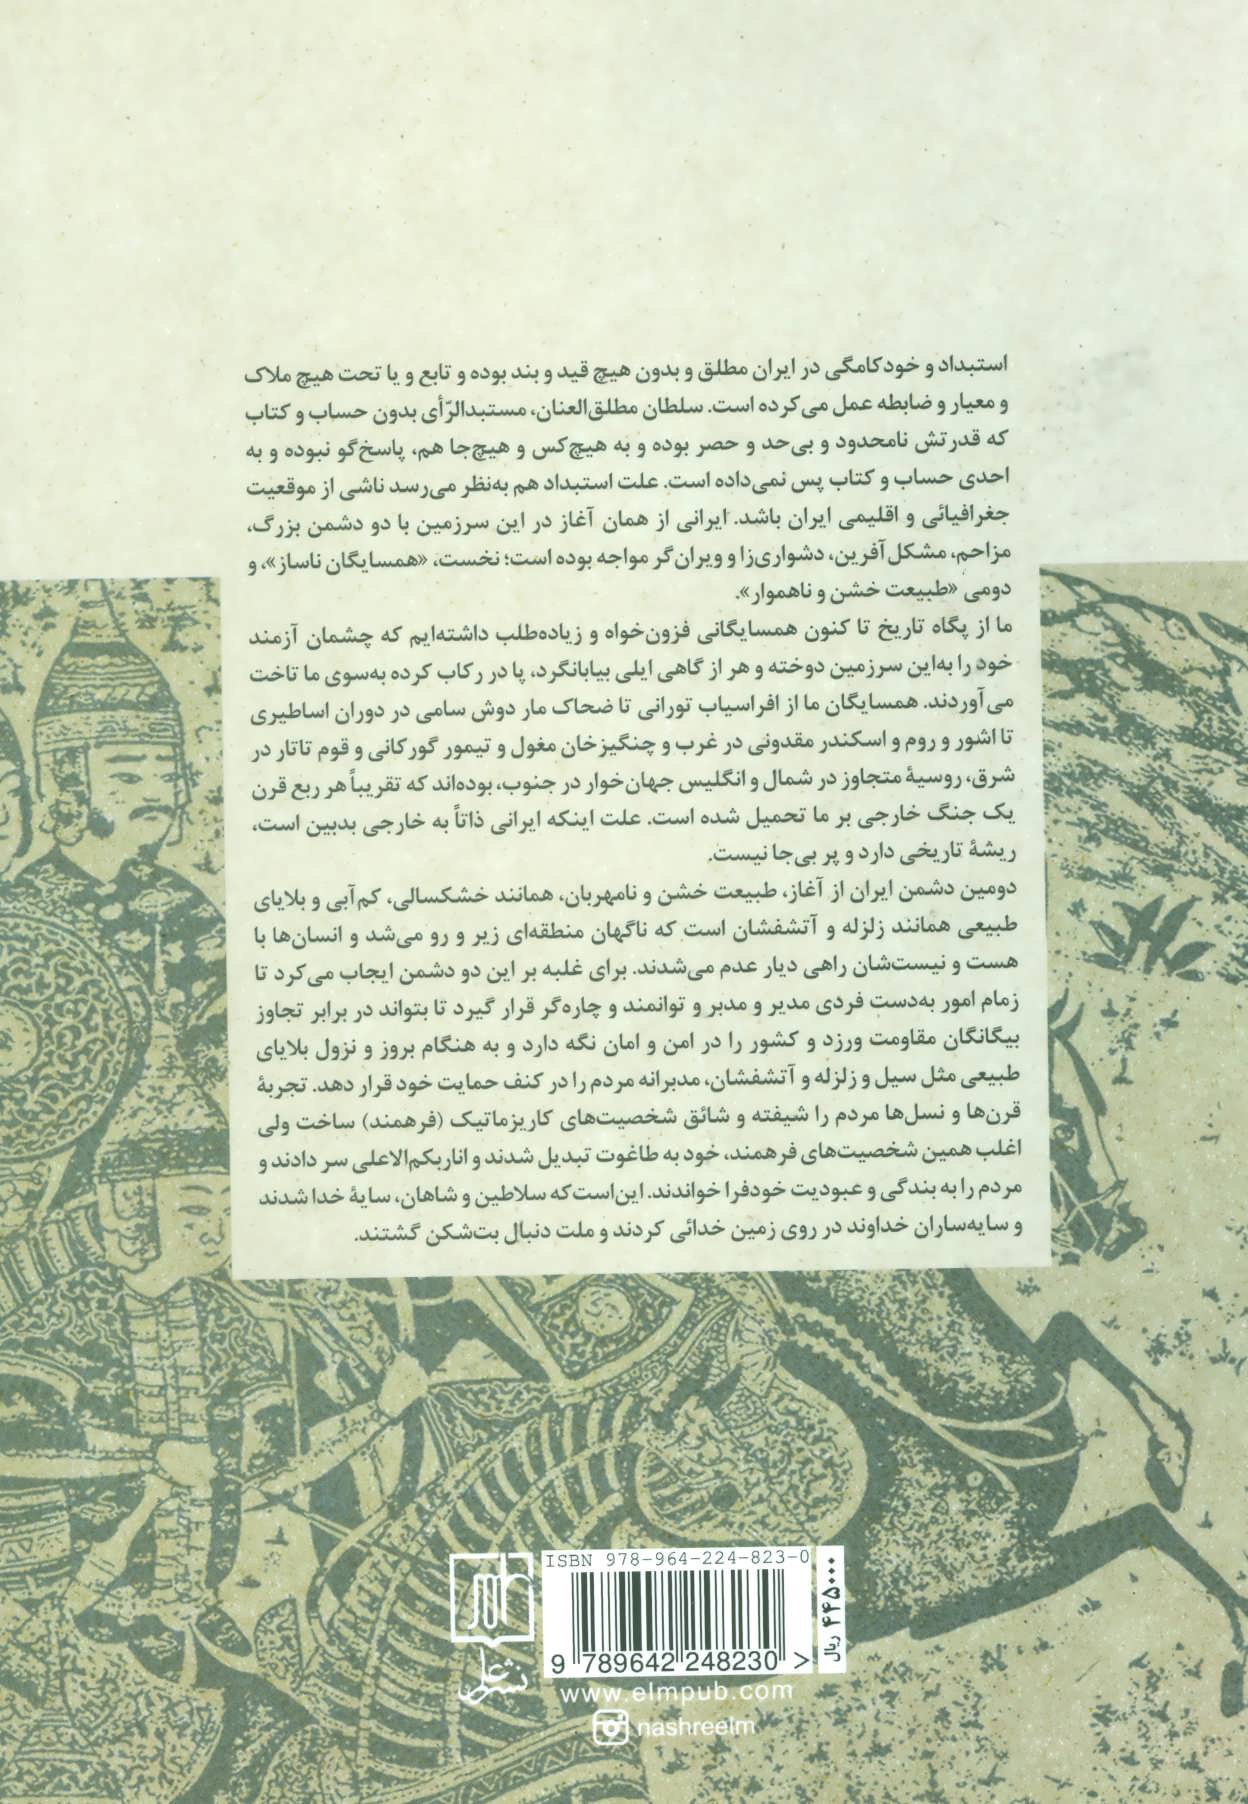 استبداد و خودکامگی در ایران مطلق و بدون هیچ قید و بند بوده و تابع و یا تحت هیچ ملاک
و معیار و ضابطه عمل می‌کرده است. سلطان مطلق‌العنان، مستبدالرّأی بدون حساب و کتاب
که قدرتش نامحدود و بی‌حد و حصر بوده و به هیچ‌کس و هیچ‌جا هم، پاسخ‌گو نبوده و به
احدی حساب و کتاب پس نمی‌داده است. علت استبداد هم به‌نظر می‌رسد ناشی از موقعیت
جغرافیائی و اقلیمی ایران باشد. ایرانی از همان آغاز در این سرزمین با دو دشمن بزرگ،
مزاحم، مشکل‌آفرین، دشواری‌زا و ویران‌گر مواجه بوده است؛ نخست، «همسایگان ناساز»، و
دومی «طبیعت خشن و ناهموار».
ما از پگاه تاریخ تا کنون همسایگانی فزون‌خواه و زیاده‌طلب داشته‌ایم که چشمان آزمند
خود را به‌این سرزمین دوخته و هر از گاهی ایلی بیابانگرد، پا در رکاب کرده به‌سوی ما تاخت
می‌آوردند. همسایگان ما از افراسیاب تورانی تا ضحاک مار دوش سامی در دوران اساطیری
تا اشور و روم و اسکندر مقدونی در غرب و چنگیزخان مغول و تیمور گورکانی و قوم تاتار در
شرق، روسیهٔ متجاوز در شمال و انگلیس جهان‌خوار در جنوب، بوده‌اند که تقریباً هر ربع قرن
یک جنگ خارجی بر ما تحمیل شده است. علت اینکه ایرانی ذاتاً به خارجی بدبین است،
ریشهٔ تاریخی دارد و پر بی‌جا نیست.
دومین دشمن ایران از آغاز، طبیعت خشن و نامهربان، همانند خشکسالی، کم‌آبی و بلایای
طبیعی همانند زلزله و آتشفشان است که ناگهان منطقه‌ای زیر و رو می‌شد و انسان‌ها با
هست و نیست‌شان راهی دیار عدم می‌شدند. برای غلبه بر این دو دشمن ایجاب می‌کرد تا
زمام امور به‌دست فردی مدیر و مدبر و توانمند و چاره‌گر قرار گیرد تا بتواند در برابر تجاوز
بیگانگان مقاومت ورزد و کشور را در امن و امان نگه دارد و به هنگام بروز و نزول بلایای
طبیعی مثل سیل و زلزله و آتشفشان، مدبرانه مردم را در کنف حمایت خود قرار دهد. تجربهٔ
قرن‌ها و نسل‌ها مردم را شیفته و شائق شخصیت‌های کاریزماتیک (فرهمند) ساخت ولی
اغلب همین شخصیت‌های فرهمند، خود به طاغوت تبدیل شدند و اناربکم‌الاعلی سر دادند و
مردم را به بندگی و عبودیت خودفرا خواندند. این‌است‌که سلاطین و شاهان، سایهٔ خدا شدند
و سایه‌ساران خداوند در روی زمین خدائی کردند و ملت دنبال بت‌شکن گشتند.
ISBN 978-964-224-823-0
9 789642 248230 >
۴۴۵۰۰۰ ریال
علم
نشر علم
www.elmpub.com
nashreelm